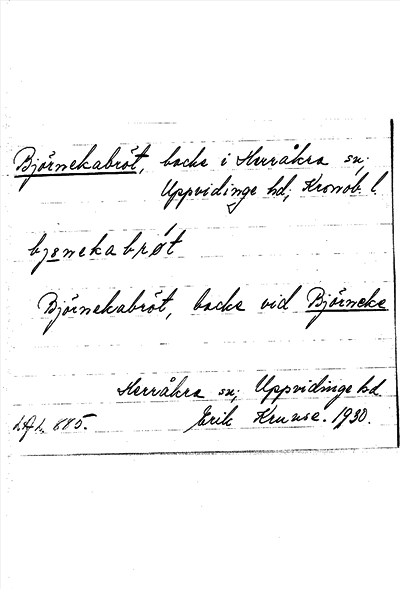 Björnekabröt, backe i Herråkra sn;
Uppvidinge hd; Kronob. l.
bjønekabrǿt
Björnekabröt, backe vid Björneke
Herråkra sn; Uppvidinge hd.
LAL 885. Erik Kruuse. 1930.